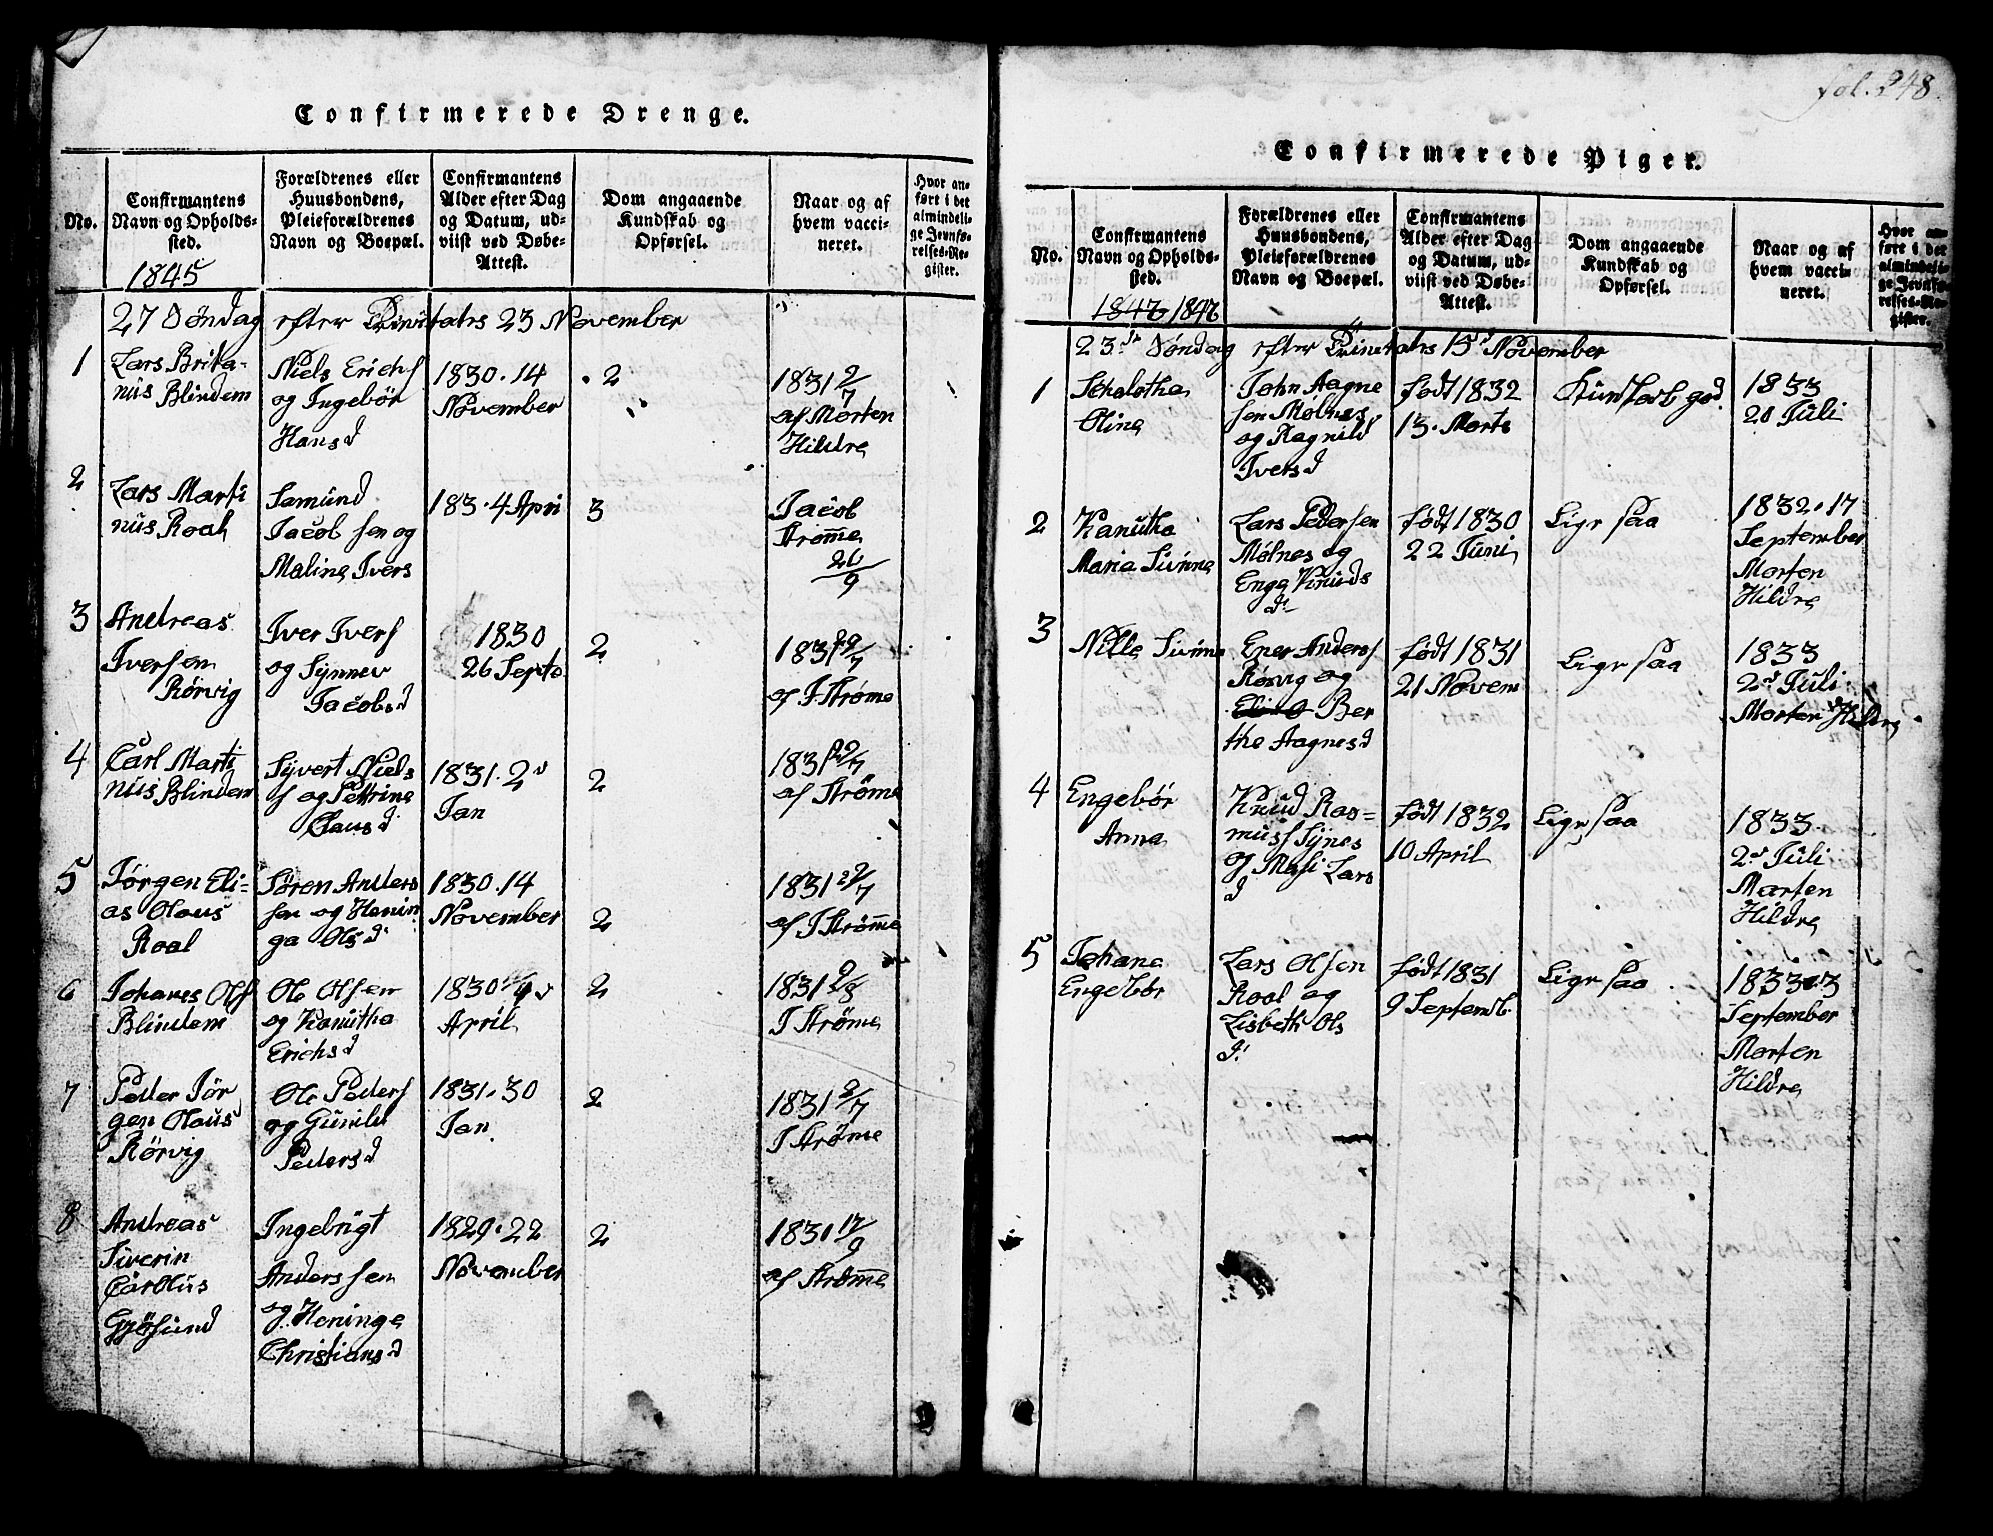 Confirmerede Drenge.
No.
Confirmantens
Navn og Opholds-
sted.
1845
Forældrenes eller
Huusbondens,
Pleieforældrenes
Navn og Boepæl.
Confirmantens
Alder efter Dag
og Datum, ud-
viist ved Døbe-
Attest.
Dom angaaende
Kundskab og
Opførsel.
Naar og af
hvem vacci-
neret.
Hvor an-
ført i det
almindeli-
ge Jevnfø-
relses-Re-
gister.
27 Søndag efter Trinitatis 23 November
1
Lars Brita-
nus Blindem
Niels Erichs
og Ingebør
Hansd
1830. 14
November
2
1831 2/7
af Morten
Hildre
2
Lars Marti
nus Roal
Samund
Jacob sen og
Maline Ivers
183. 4 Apri
3
Jacob
Strømme
26/9
3
Andreas
Iversen
Rörvig
Iver Ivers
og Synnev
Jacobsd
1830
26 Septe
2
1831 29/7
af J. Strøme
4
Carl Marti
nus Blindem
Syvert Niels
s og Pettrine
Clausd
1831. 2d
Jan
2
1831 29/7
af Strøme
5
Jørgen Eli-
as Olaus
Roal
Søren Anders
sen og Henin
ga Olsd
1830. 14
November
2
1831 29/7
af J Strømme
6
Johanes Ols
Blindem
Ole Olsen
og Kanutha
Erichsd
1830
April
2
1831
J Strøme
7
Peder Jör
gen Olaus
Rörvig
Ole Peders
og Gunild
Pedersd
1831. 30
Jan
2
1831 2/7
J Strøme
8
Andreas
Siverin
Carolus
Gjøsund
Ingebrigt
Anderssen
og Heninge
Christiansd
1829. 22
November
2
1831 17/9
af Strømme
fol. 248.
Confirmerede Piger.
No.
Confirmantens
Navn og Opholds-
sted.
1847 1846
Forældrenes eller
Huusbondens,
Pleieforældrenes
Navn og Boepæl.
Confirmantens
Alder efter Dag
og Datum, ud-
viist ved Døbe-
Attest.
Dom angaaende
Kundskab og
Opførsel.
Naar og af
hvem vacci-
neret.
Hvor an-
ført i det
almindeli-
ge Jevnfø-
relses-Re-
gister.
23de Søndag efter Trinitatis 15d November
1
Schalotha
Oline
John Aagne
sen Mølnes
og Ragnild
Iversd
født 1832
13. Morts
Kunskab god
1833
20 Juli
2
Kanutha
Maria Sivrine
Lars Pedersen
Mølnes og
Enge Knuds
d
født 1830
22 Juni
Lige saa
1832. 17
September
Morten
Hildre
3
Nille
Ener Anders
Rösvig og
Ber
the Aagnesd
født 1831
21 Novem
Lige saa
1833
2d Juli
Morten Hildre
4
Engebör
Anna
Knud Ras=
muss Synes
og Masi Lars
d
født 1832
10 April
Lige saa
1833
2d Juli
Morten
Hildre
5
Johane
Engebör
Lars Olsen
Roal og
Lisbeth Ols
d
født 1831
9 Septemb.
Lige saa
1833. 3
September
Morten
Hildre